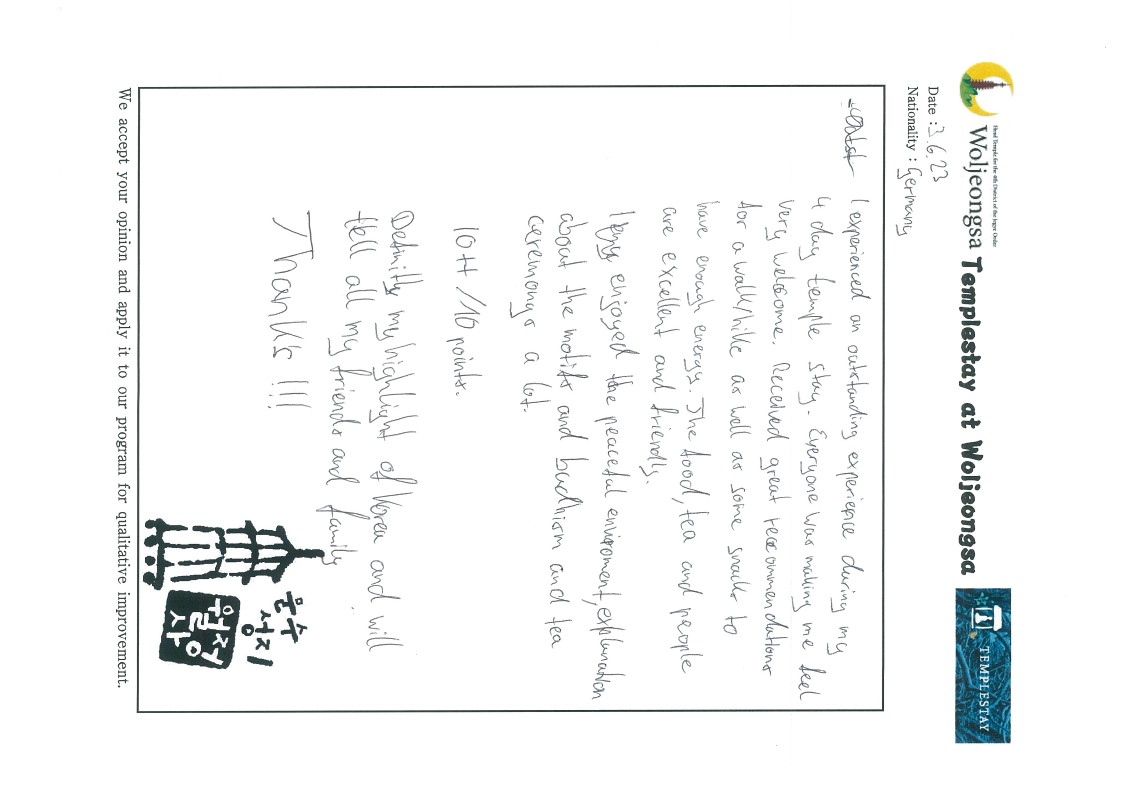 Head Temple for the 4th District of the Jogye Order
Woljeongsa Templestay at Woljeongsa
TEMPLESTAY
Date : 3.6.23
Nationality : Germany
I experienced an outstanding experience during my
4 day temple stay. Everyone was making me feel
very welcome. Received great recommendations
for a walk/hike as well as some snacks to
have enough energy. The food, tea and people
are excellent and friendly.
I enjoyed the peaceful enviroment, explanation
about the motifs and budhism and tea
ceremony a lot.
10++/10 points.
Definitly my highlight of Korea and will
tell all my friends and family.
Thanks !!!
문수
성지
월정사
We accept your opinion and apply it to our program for qualitative improvement.